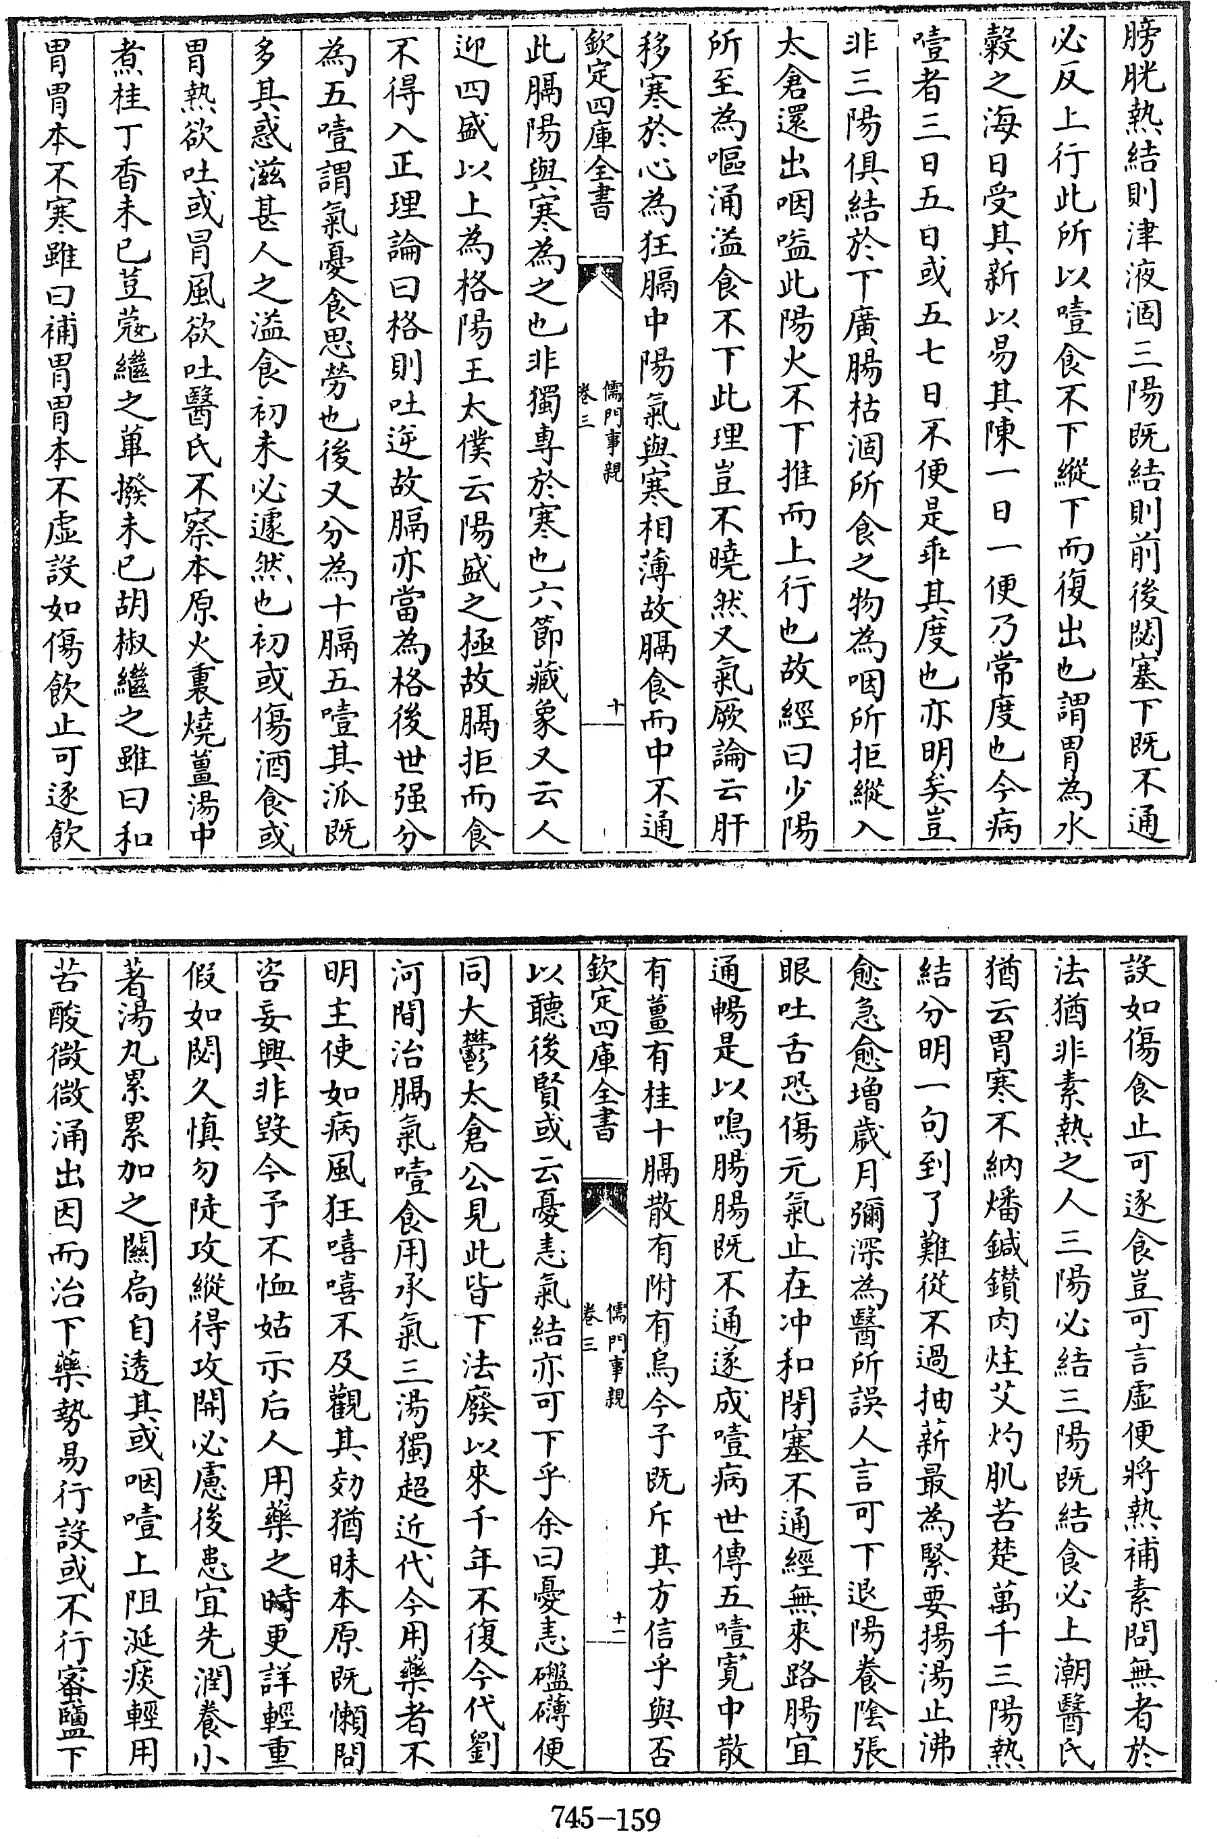 膀胱熱結則津液涸三陽既結則前後閟塞下既不通
必反上行此所以噎食不下縱下而復出也謂胃為水
穀之海日受其新以易其陳一日一便乃常度也今病
噎者三日五日或五七日不便是乖其度也亦明矣豈
非三陽俱結於下廣腸枯涸所食之物為咽所拒縱入
太倉還出咽嗌此陽火不下推而上行也故經曰少陽
所至為嘔涌溢食不下此理豈不曉然又氣厥論云肝
移寒於心為狂膈中陽氣與寒相薄故膈食而中不通
欽定四庫全書
儒門事親
卷三
十
此膈陽與寒為之也非獨專於寒也六節藏象又云人
迎四盛以上為格陽王太僕云陽盛之極故膈拒而食
不得入正理論曰格則吐逆故膈亦當為格後世强分
為五噎謂氣憂食思勞也後又分為十膈五噎其派既
多其惑滋甚人之溢食初未必遽然也初或傷酒食或
胃熱欲吐或冒風欲吐醫氏不察本原火裏燒薑湯中
煮桂丁香未已荳蔻繼之蓽撥未已胡椒繼之雖曰和
胃胃本不寒雖曰補胃胃本不虛設如傷飲止可逐飲
設如傷食止可逐食豈可言虛便將熱補素問無者於
法猶非素熱之人三陽必結三陽既結食必上潮醫氏
猶云胃寒不納燔鍼鑽肉炷艾灼肌苦楚萬千三陽熱
結分明一句到了難從不過抽薪最為緊要揚湯止沸
愈急愈增歲月彌深為醫所誤人言可下退陽養陰張
眼吐舌恐傷元氣止在冲和閉塞不通經無來路腸宜
通暢是以鳴腸腸既不通遂成噎病世傳五噎寬中散
有薑有桂十膈散有附有烏今予既斥其方信乎與否
欽定四庫全書
儒門事親
卷三
十一
以聽後賢或云憂恚氣結亦可下乎余曰憂恚磤礴便
同大鬱太倉公見此皆下法廢以來千年不復今代劉
河間治膈氣噎食用承氣三湯獨超近代今用藥者不
明主使如病風狂嘻嘻不及觀其効猶昧本原既懶問
咨妄興非毀今予不恤姑示后人用藥之時更詳輕重
假如閟久慎勿陡攻縱得攻開必慮後患宜先潤養小
著湯丸累累加之關扃自透其或咽噎上阻涎痰輕用
苦酸微微涌出因而治下藥勢易行設或不行蜜鹽下
745-159